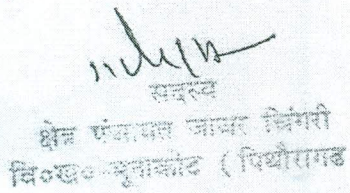 सदस्य
क्षेत्र पंचायत जाजर चिंगरी
वि०ख०-मूनाकोट (पिथौरागढ